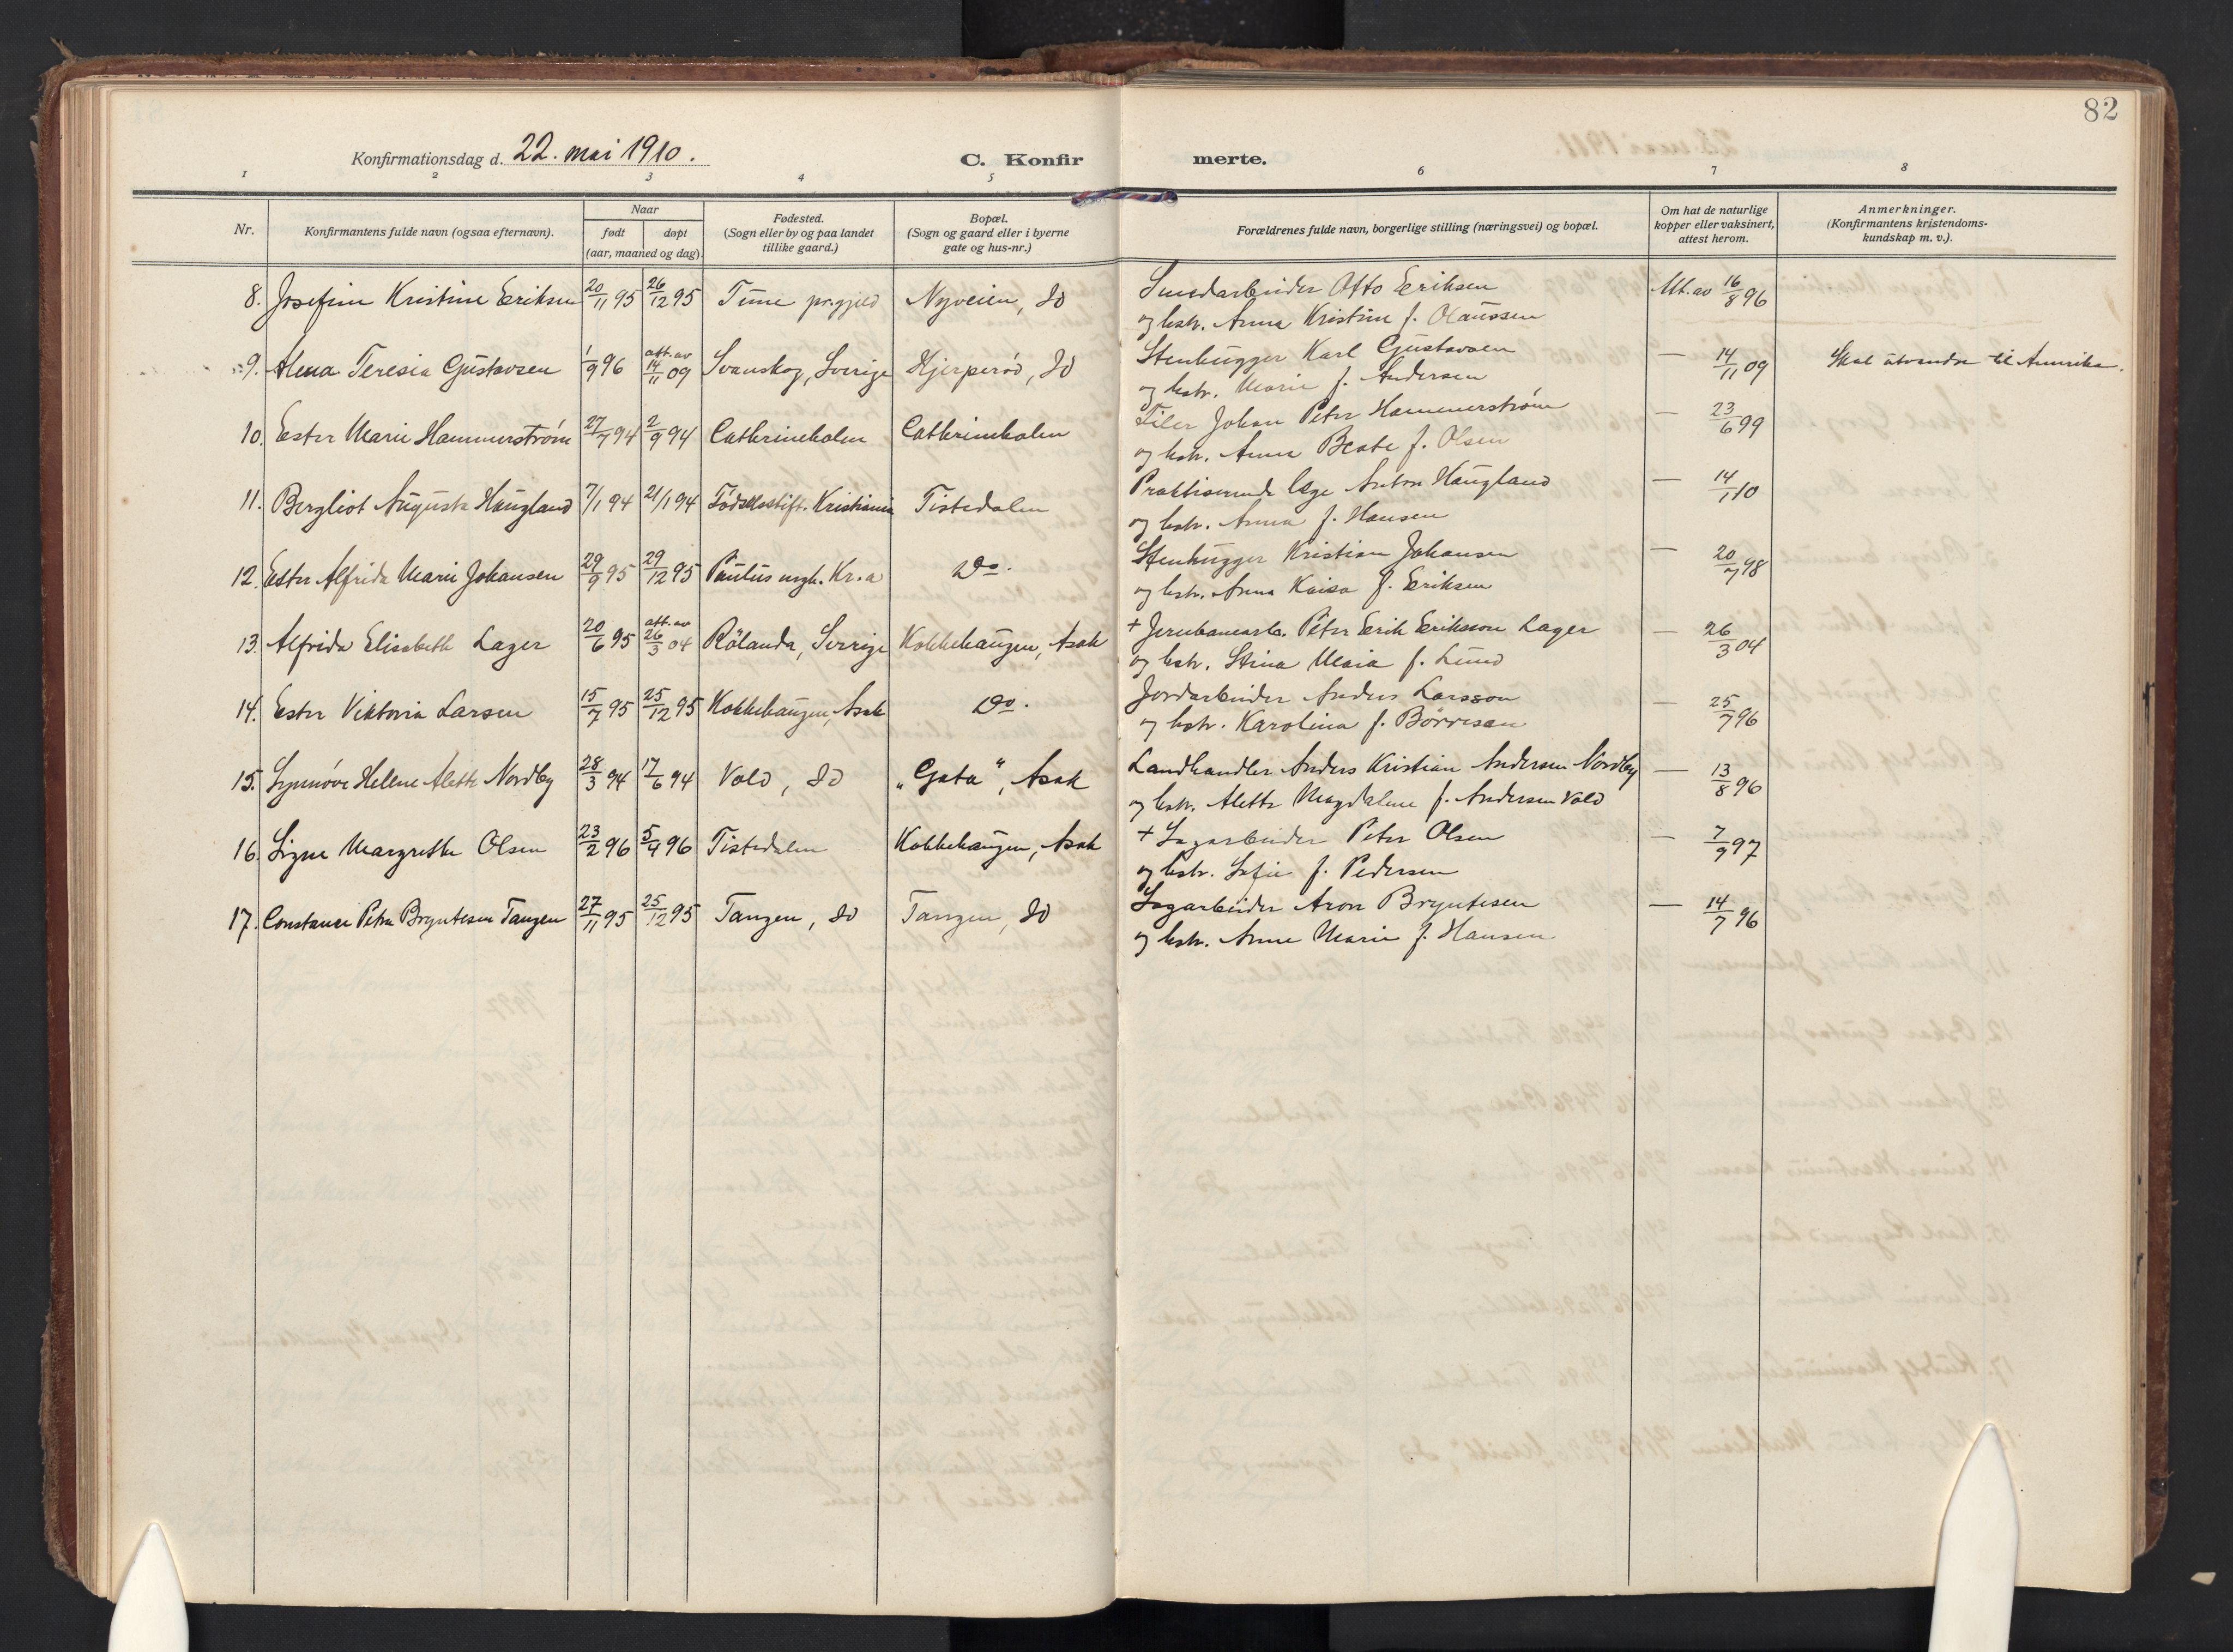 82
Konfirmationsdag d. 22. mai 1910.
C. Konfir merte.
1 2 3 4 5 6 7 8
Nr. Konfirmantens fulde navn (ogsaa efternavn). Naar født døpt (aar, maaned og dag) Fødested. (Sogn eller by og paa landet tillike gaard.) Bopæl. (Sogn og gaard eller i byerne gate og hus-nr.) Forældrenes fulde navn, borgerlige stilling (næringsvei) og bopæl. Om hat de naturlige kopper eller vaksinert, attest herom. Anmerkninger. (Konfirmantens kristendoms-kundskap m. v.).
8. Josefine Kristine Eriksen 20/11 95 26/12 95 Time pr.gjeld Nyveien, Id Smedarbeider Otto Eriksen Att. av 16/8 96
og hstr. Anna Kristine f. Olaussen
9. Alma Teresia Gustavsen 1/9 96 att. av 14/11 09 Svanskog, Sverige Hjerperød, Id Stenhugger Karl Gustavsen — 14/11 09 Skal utvandre til Amerika.
og hstr. Marie f. Andersen
10. Ester Marie Hammerstrøm 27/7 94 2/9 94 Cathrineholm Cathrineholm Filer Johan Peter Hammerstrøm — 23/6 99
og hstr. Anna Beate f. Olsen
11. Bergliot Augusta Haugland 7/1 94 21/1 94 Fødselsstift. Kristiania Tistedalen Praktiserende læge Anton Haugland — 14/1 10
og hstr. Anna f. Hansen
12. Ester Alfrida Marie Johansen 29/9 95 29/12 95 Paulus mgh. Kr.a Do. Stenhugger Kristian Johansen — 20/7 98
og hstr. Anna Kaisa f. Eriksen
13. Alfrida Elisabeth Lager 20/6 95 att. av 26/3 04 Rölanda, Sverige Kokkehaugen, Asak + Jernbanearb. Peter Erik Eriksson Lager — 26/3 04
og hstr. Stina Maia f. Lund
14. Ester Viktoria Larsen 15/7 95 25/12 95 Kokkehaugen, Asak Do. Jordarbeider Anders Larsson — 25/7 96
og hstr. Karolina f. Børresen
15. Synnøve Helene Alette Nordby 28/3 94 17/6 94 Vold, Id „Gata", Asak Landhandler Anders Kristian Andersen Nordby — 13/8 96
og hstr. Alette Magdalene f. Andersen Vold
16. Signe Margrethe Olsen 23/2 96 5/4 96 Tistedalen Kokkehaugen, Asak + Sagarbeider Peter Olsen — 7/9 97
og hstr. Sofie f. Pedersen
17. Constance Petra Bryntesen Tangen 27/11 95 25/12 95 Tangen, Id Tangen, Id Sagarbeider Aron Bryntesen — 14/7 96
og hstr. Anne Marie f. Hansen